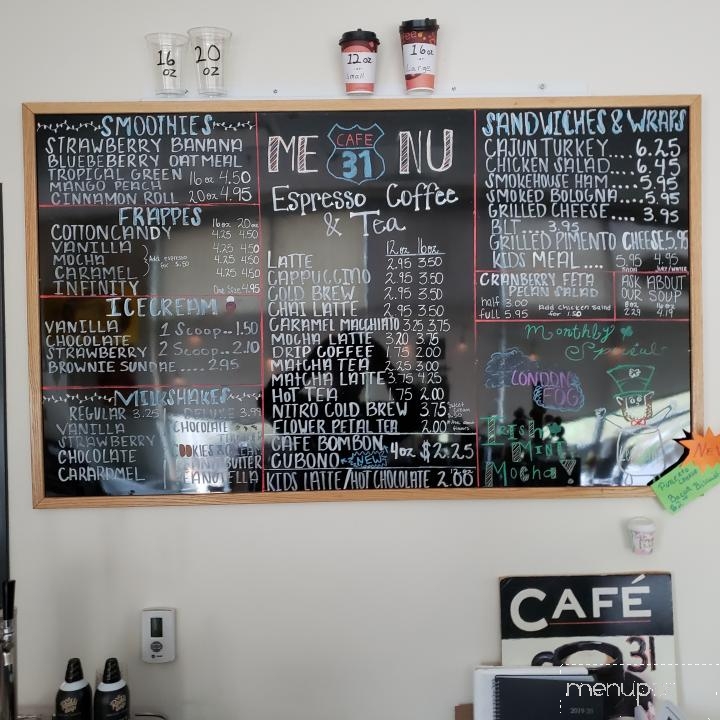 16 oz
20 oz
12 oz
Small
16 oz
Large
SMOOTHIES
STRAWBERRY BANANA
BLUEBEBERRY OATMEAL
TROPICAL GREEN 16oz 4.50
MANGO PEACH
CINNAMON ROLL 20oz 4.95
FRAPPES
16oz 20oz
COTTONCANDY 4.25 4.50
VANILLA 4.25 4.50
MOCHA Add espresso for $.50 4.25 4.50
CARAMEL 4.25 4.50
INFINITY One Size 4.95
ICECREAM
VANILLA 1 Scoop..1.50
CHOCOLATE
STRAWBERRY 2 Scoop..2.10
BROWNIE SUNDAE.... 2.95
MILKSHAKES
REGULAR 3.25 DELUXE 3.99
VANILLA CHOCOLATE
STRAWBERRY
CHOCOLATE COOKIES & CREAM
CARARMEL PEANUTBUTER
MENU
CAFE 31
Espresso Coffee
& Tea
12oz 16oz
LATTE 2.95 3.50
CAPPUCCINO 2.95 3.50
COLD BREW 2.95 3.50
CHAI LATTE 2.95 3.50
CARAMEL MACCHIATO 3.25 3.75
MOCHA LATTE 3.20 3.75
DRIP COFFEE 1.75 2.00
MATCHA TEA 2.25 3.00
MATCHA LATTE 3.75 4.25
HOT TEA 1.75 2.00
NITRO COLD BREW 3.75 Sweet Cream
FLOWER PETAL TEA 2.00
CAFE BOMBON
CUBONO NEW 4oz $2.25
KIDS LATTE/HOT CHOCOLATE 2.00
SANDWICHES & WRAPS
CAJUN TURKEY.... 6.25
CHICKEN SALAD.... 6.45
SMOKEHOUSE HAM.... 5.95
SMOKED BOLOGNA.. 5.95
GRILLED CHEESE.... 3.95
BLT.... 3.95
GRILLED PIMENTO CHEESE 5.95
KIDS MEAL.... 5.95 4.95
CRANBERRY FETA
PECAN SALAD
half 3.00 Add Chicken Salad
full 5.95 for 1.50
ASK ABOUT
OUR SOUP
8oz
2.29 4.19
Monthly
Special
LONDON
FOG
Irish
Mint
Mocha!
NEW
CAFÉ
31
menupix
2019-20